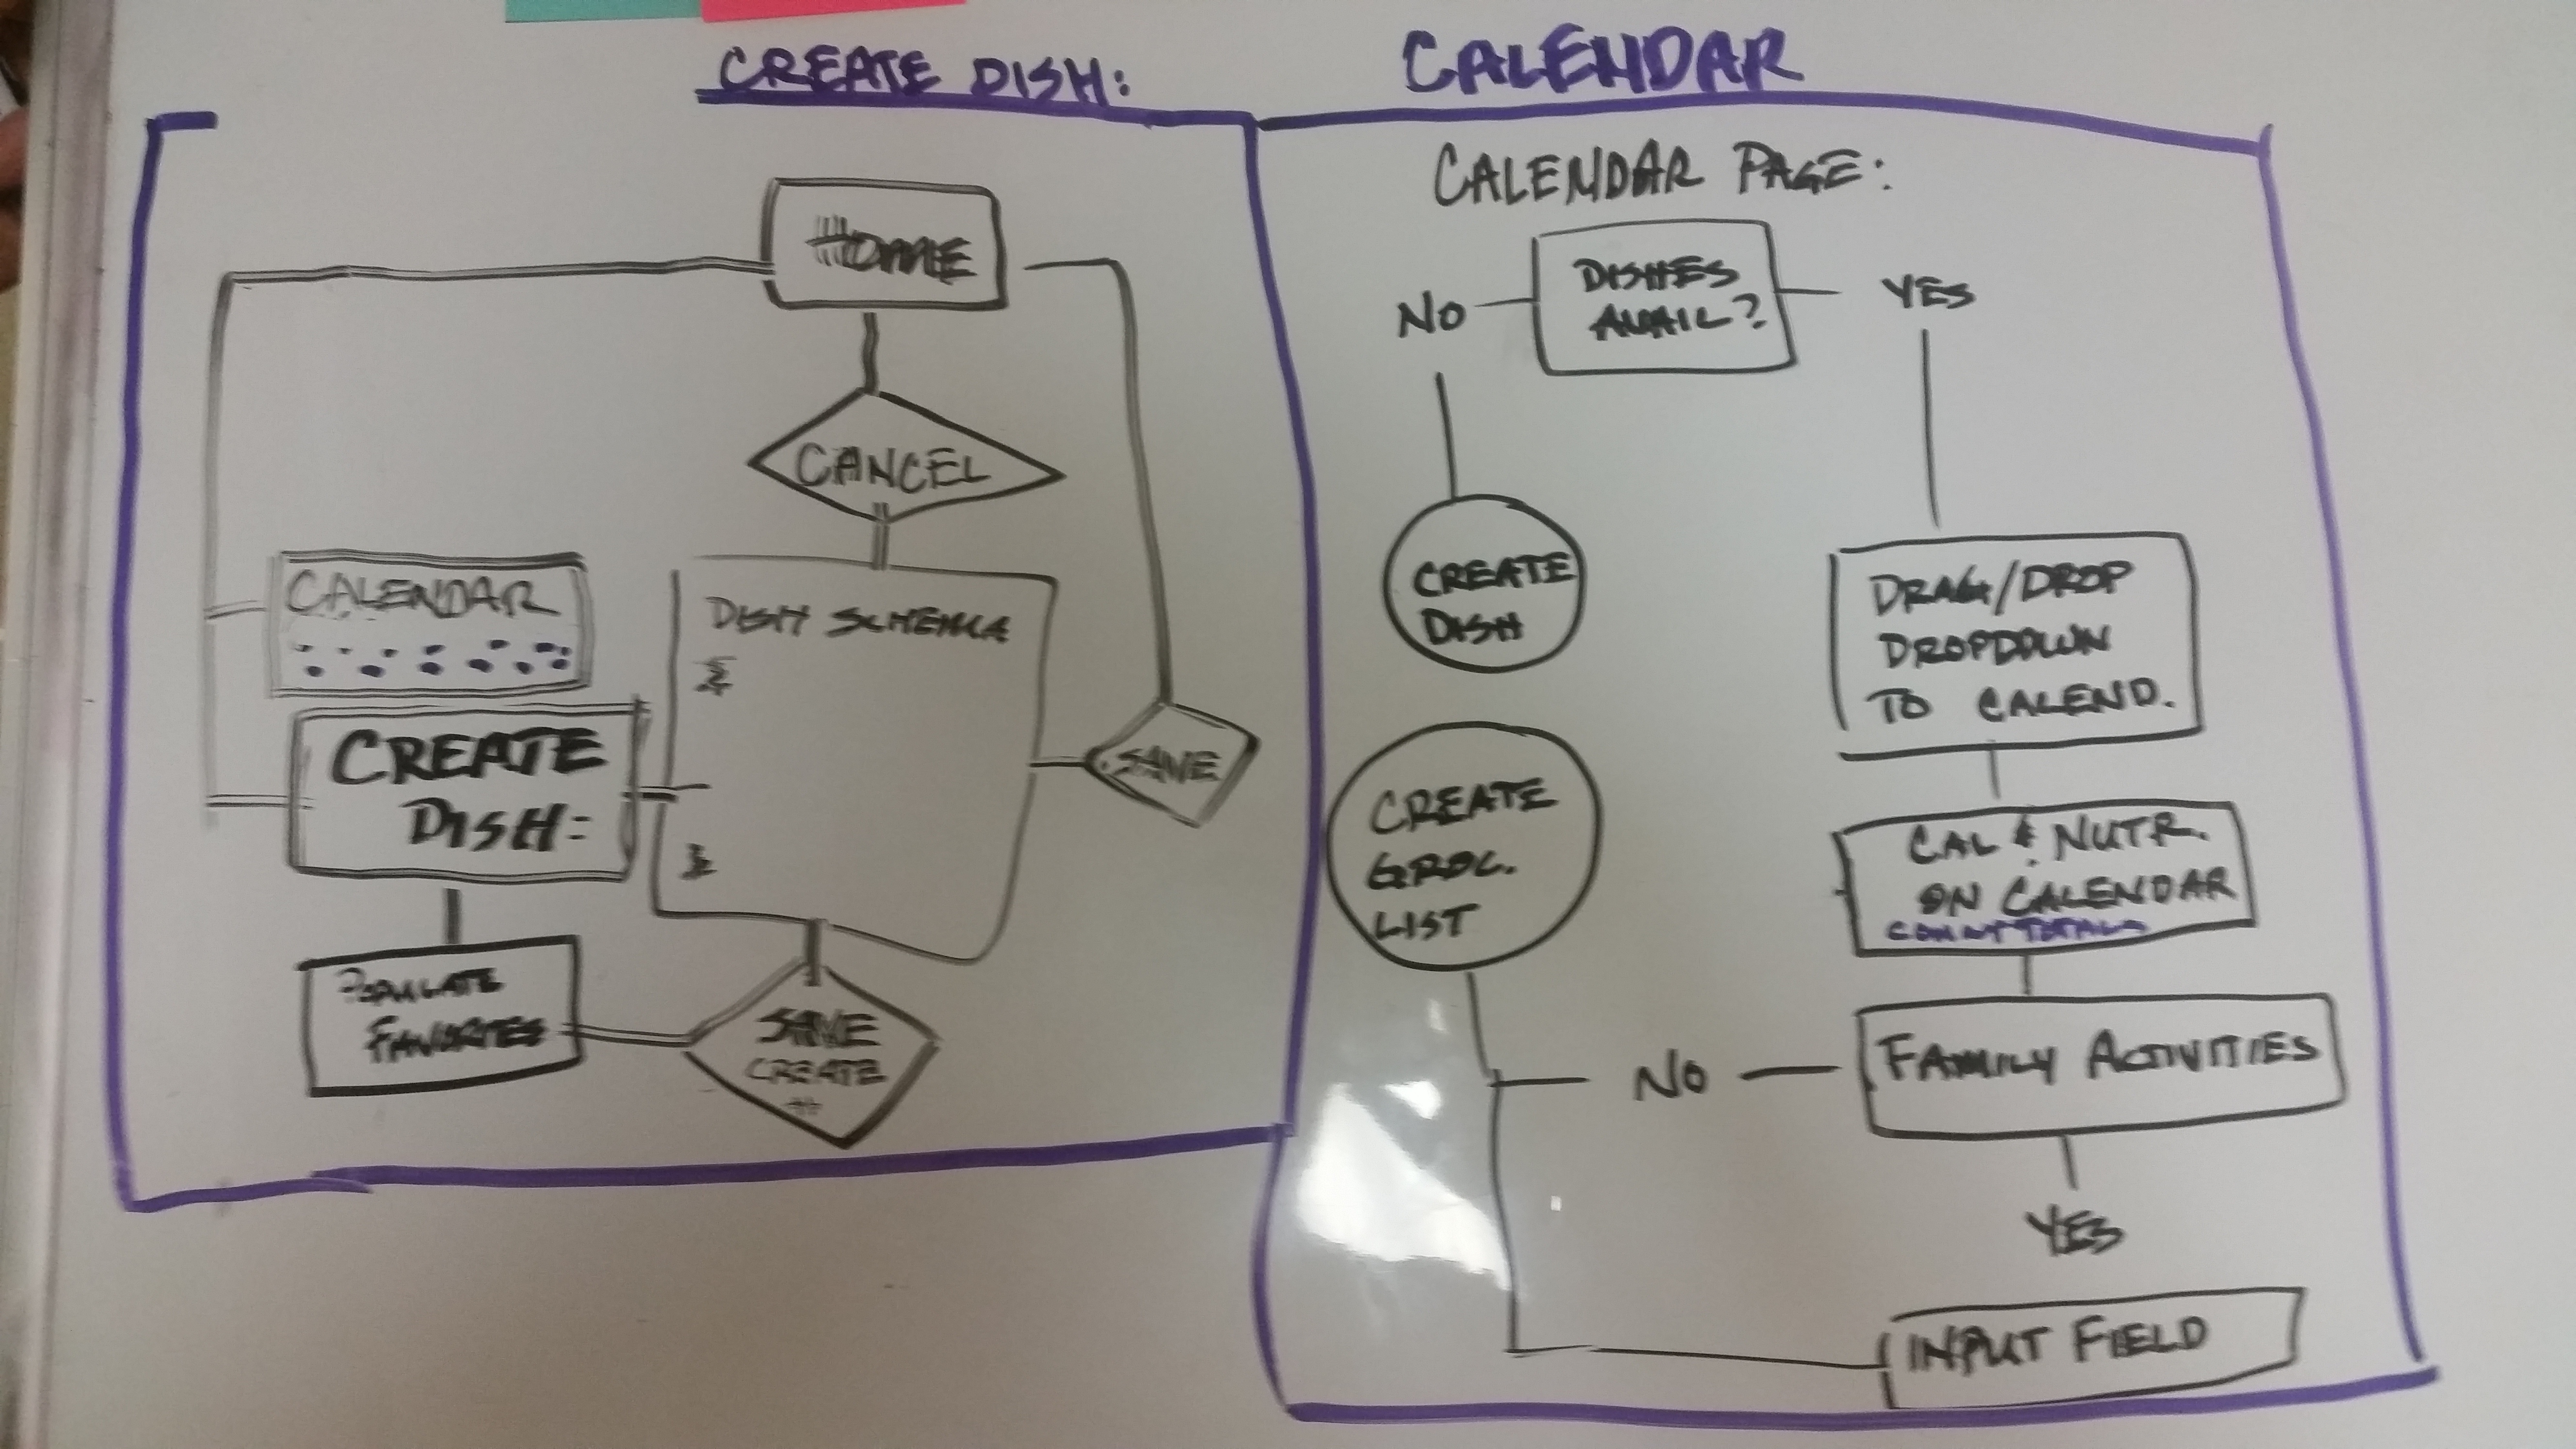 CREATE DISH:
HOME
CANCEL
CALENDAR
DISH SCHEMA
CREATE
DISH:
SAVE
POPULATE
FAVORITES
SAVE
CREATE
CALENDAR
CALENDAR PAGE:
DISHES
AVAIL?
NO
YES
CREATE
DISH
DRAG/DROP
DROPDOWN
TO CALEND.
CREATE
GROC.
LIST
CAL & NUTR.
ON CALENDAR
COUNT TOTALS
FAMILY ACTIVITIES
NO
YES
INPUT FIELD